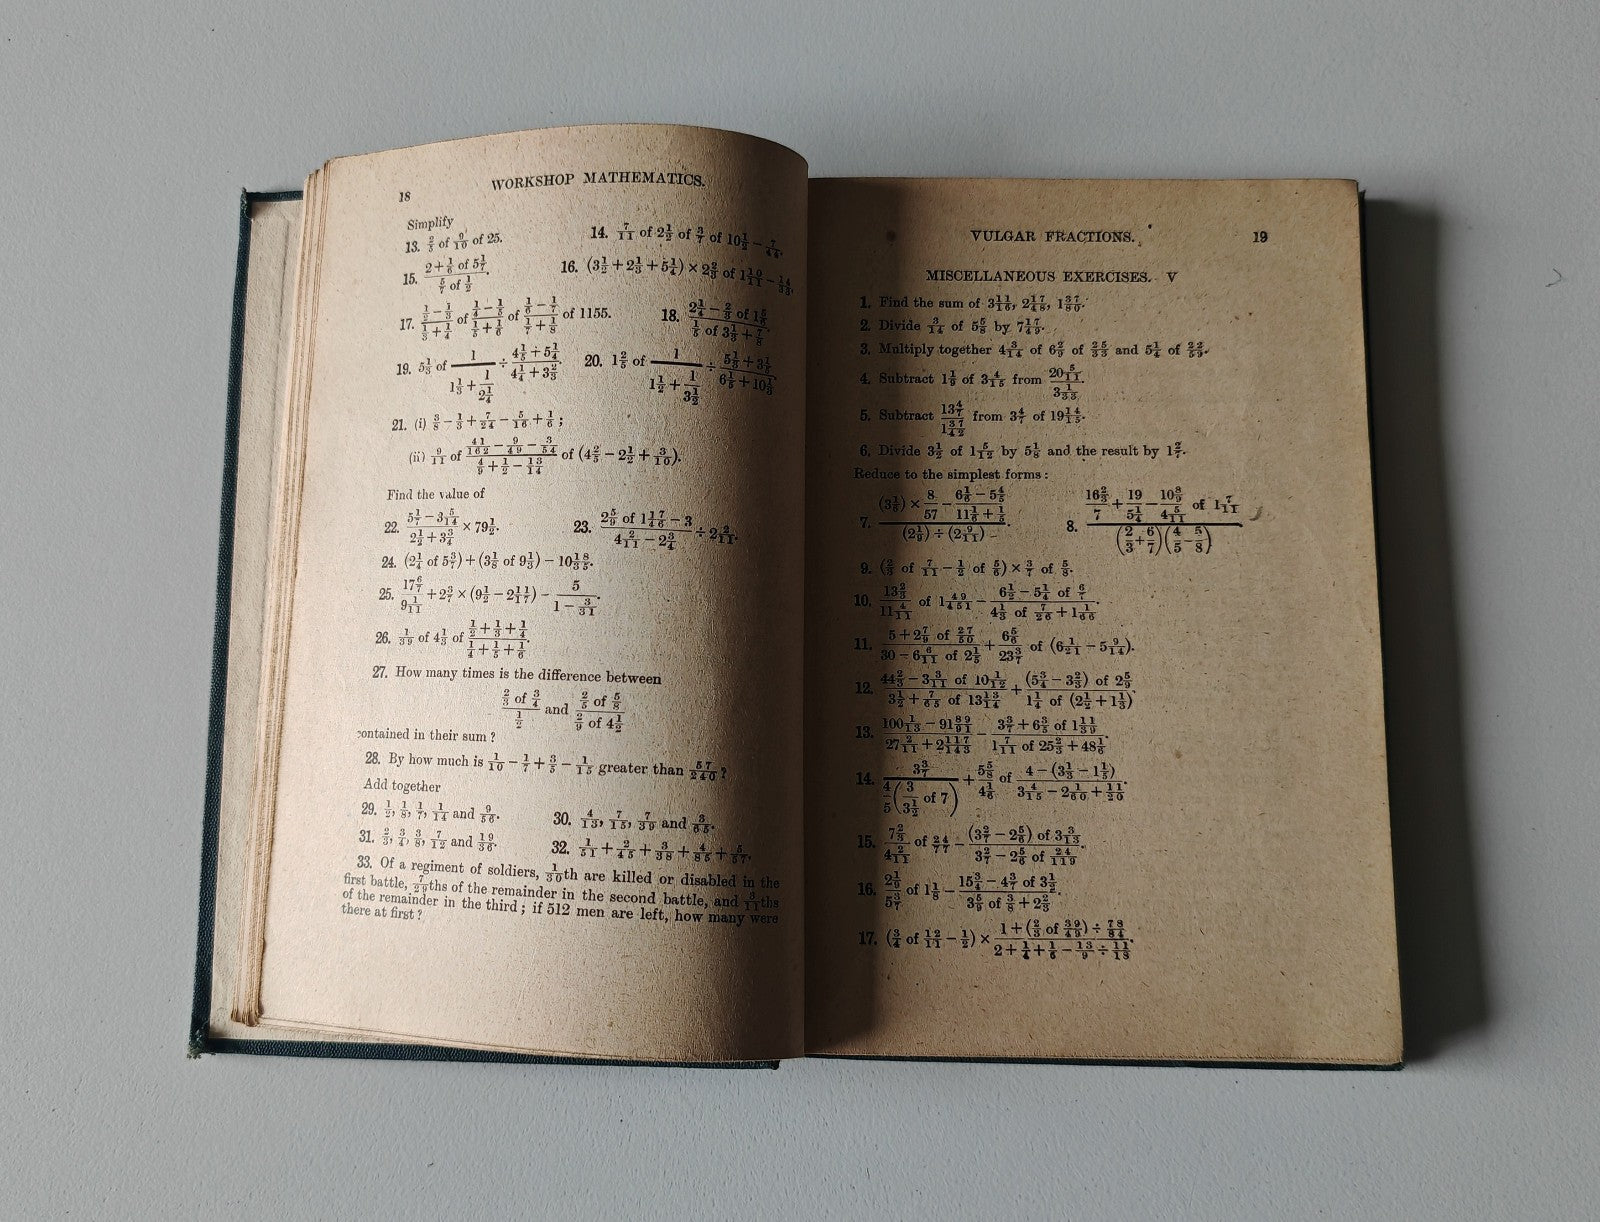 18
WORKSHOP MATHEMATICS.
Simplify
13. 2/5 of 9/10 of 25.
14. 7/11 of 2 1/2 of 3/7 of 10 1/2 − 7/44.
15. (2 + 1/6 of 5 1/7)/(5/7 of 1/2).
16. (3 1/2 + 2 1/3 + 5 1/4) × 2 2/3 of 1 10/11 − 14/33.
17. (1/2 − 1/3)/(1/3 + 1/4) of (1/4 − 1/5)/(1/5 + 1/6) of (1/6 − 1/7)/(1/7 + 1/8) of 1155.
18. (2 1/4 − 2/3 of 1 5/6)/(1/5 of 3 1/3 + 7/8).
19. 5 1/3 of 1/(1 1/3 + 1/(2 1/4)) ÷ (4 1/5 + 5 1/4)/(4 1/4 + 3 2/3).
20. 1 2/5 of 1/(1 1/2 + 1/(3 1/2)) ÷ (5 1/3 + 3 1/5)/(6 1/5 + 10 1/3).
21. (i) 3/8 − 1/3 + 7/24 − 5/16 + 1/6 ;
(ii) 9/11 of (41/162 − 9/49 − 3/54)/(4/9 + 1/2 − 13/14) of (4 2/5 − 2 1/2 + 3/10).
Find the value of
22. (5 1/7 − 3 5/14)/(2 1/2 + 3 3/4) × 79 1/2.
23. (2 5/9 of 1 17/46 − 3)/(4 2/11 − 2 3/4) ÷ 2 2/11.
24. (2 1/4 of 5 3/7) + (3 1/8 of 9 1/3) − 10 18/35.
25. (17 6/7)/(9 1/11) + 2 3/7 × (9 1/2 − 2 11/17) − 5/(1 − 3/31).
26. 1/39 of 4 1/3 of (1/2 + 1/3 + 1/4)/(1/4 + 1/5 + 1/6).
27. How many times is the difference between
(2/3 of 3/4)/(1/2) and (2/5 of 5/8)/(2/9 of 4 1/2)
contained in their sum ?
28. By how much is 1/10 − 1/7 + 3/5 − 1/15 greater than 57/240 ?
Add together
29. 1/2, 1/8, 1/7, 1/14 and 9/56.
30. 4/13, 7/15, 7/39 and 3/65.
31. 2/3, 3/4, 3/8, 7/12 and 19/36.
32. 1/51 + 2/45 + 3/38 + 4/85 + 5/57.
33. Of a regiment of soldiers, 1/30th are killed or disabled in the
first battle, 7/29ths of the remainder in the second battle, and 3/11ths
of the remainder in the third ; if 512 men are left, how many were
there at first ?
VULGAR FRACTIONS.
19
MISCELLANEOUS EXERCISES. V
1. Find the sum of 3 11/16, 2 17/48, 1 37/80.
2. Divide 3/14 of 5 5/8 by 7 17/49.
3. Multiply together 4 3/14 of 6 2/9 of 25/33 and 5 1/4 of 22/59.
4. Subtract 1 1/9 of 3 4/15 from (20 5/11)/(3 1/33).
5. Subtract (13 4/7)/(1 37/42) from 3 4/7 of 19 14/15.
6. Divide 3 1/2 of 1 5/12 by 5 1/8 and the result by 1 2/7.
Reduce to the simplest forms :
7. ((3 1/5) × 8/57 − (6 1/6 − 5 4/5)/(11 1/6 + 1/5))/((2 1/9) ÷ (2 9/11)).
8. ((16 2/3)/7 + 19/(5 1/4) − (10 8/9)/(4 5/11) of 1 7/11)/((2/3 + 6/7)(4/5 − 5/8))
9. (2/3 of 7/11 − 1/2 of 5/6) × 3/7 of 5/8.
10. (13 2/3)/(11 4/11) of 1 49/451 − (6 1/2 − 5 1/4 of 6/7)/(4 1/3 of 7/26 + 1 1/66).
11. (5 + 2 7/9 of 27/50)/(30 − 6 6/11 of 2 1/5) + (6 5/6)/(23 3/7) of (6 1/21 − 5 9/14).
12. (44 2/3 − 3 3/11 of 10 1/12)/(3 1/2 + 7/65 of 13 13/14) + ((5 3/4 − 3 2/3) of 2 5/9)/(1 1/4 of (2 1/2 + 1 1/3))
13. (100 1/13 − 91 89/91)/(27 2/11 + 2 117/143) − (3 3/7 + 6 3/5 of 1 11/39)/(1 7/11 of 25 2/3 + 48 1/6).
14. (3 3/7)/(4/5 (3/(3 1/2) of 7)) + (5 5/8)/(4 1/6) of (4 − (3 1/3 − 1 1/5))/(3 4/15 − 2 1/60 + 11/20).
15. (7 2/3)/(4 2/11) of 24/77 − ((3 2/7 − 2 5/6) of 3 3/13)/(3 2/7 − 2 5/6 of 24/119).
16. (2 1/9)/(5 3/7) of 1 1/8 − (15 3/4 − 4 3/7 of 3 1/2)/(3 5/9 of 3/8 + 2 2/3).
17. (3/4 of 12/11 − 1/2) × (1 + (2/3 of 39/49) ÷ 78/84)/(2 + 1/4 + 1/6 − 13/9 ÷ 11/18).